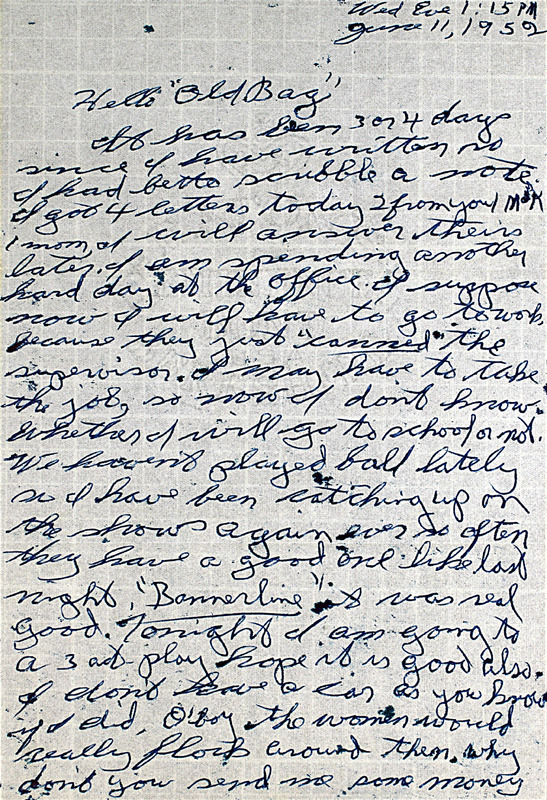 Wed Eve 1:15 PM
June 11, 1952
Hello "Old Bag"
It has been 3 or 4 days
since I have written so
I had bette scribble a note.
I got 4 letters today 2 from you 1 M & K
1 mom, I will answer theirs
later. I am spending another
hard day at the office. I suppose
now I will have to go to work
because they just "canned" the
supervisor. I may have to take
the job, so now I dont know
whether I will go to school or not.
We havent played ball lately
so I have been catching up on
the shows again, ever so often
they have a good one like last
night, "Bannerline" it was real
good. Tonight I am going to
a 3 act play hope it is good also.
I dont have a car as you know
if I did, O'boy the women would
really flock around then, why
dont you send me some money